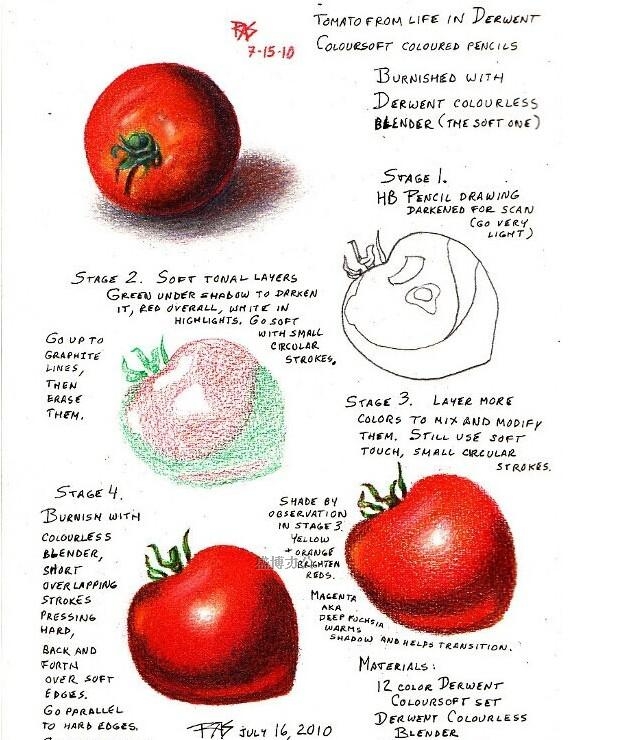 RAS
7-15-10
TOMATO FROM LIFE IN DERWENT
COLOURSOFT COLOURED PENCILS
BURNISHED WITH
DERWENT COLOURLESS
BLENDER (THE SOFT ONE)
STAGE 1.
HB PENCIL DRAWING
DARKENED FOR SCAN
(GO VERY
LIGHT)
STAGE 2. SOFT TONAL LAYERS
GREEN UNDER SHADOW TO DARKEN
IT, RED OVERALL, WHITE IN
HIGHLIGHTS. GO SOFT
WITH SMALL
CIRCULAR
STROKES.
GO UP TO
GRAPHITE
LINES,
THEN
ERASE
THEM.
STAGE 3. LAYER MORE
COLORS TO MIX AND MODIFY
THEM. STILL USE SOFT
TOUCH, SMALL CIRCULAR
STROKES.
SHADE BY
OBSERVATION
IN STAGE 3.
YELLOW
+ ORANGE
BRIGHTEN
REDS.
MAGENTA
AKA
DEEP FUCHSIA
WARMS
SHADOW AND HELPS TRANSITION.
STAGE 4.
BURNISH WITH
COLOURLESS
BLENDER,
SHORT
OVERLAPPING
STROKES
PRESSING
HARD,
BACK AND
FORTH
OVER SOFT
EDGES.
GO PARALLEL
TO HARD EDGES.
MATERIALS:
12 COLOR DERWENT
COLOURSOFT SET
DERWENT COLOURLESS
BLENDER
RAS JULY 16, 2010